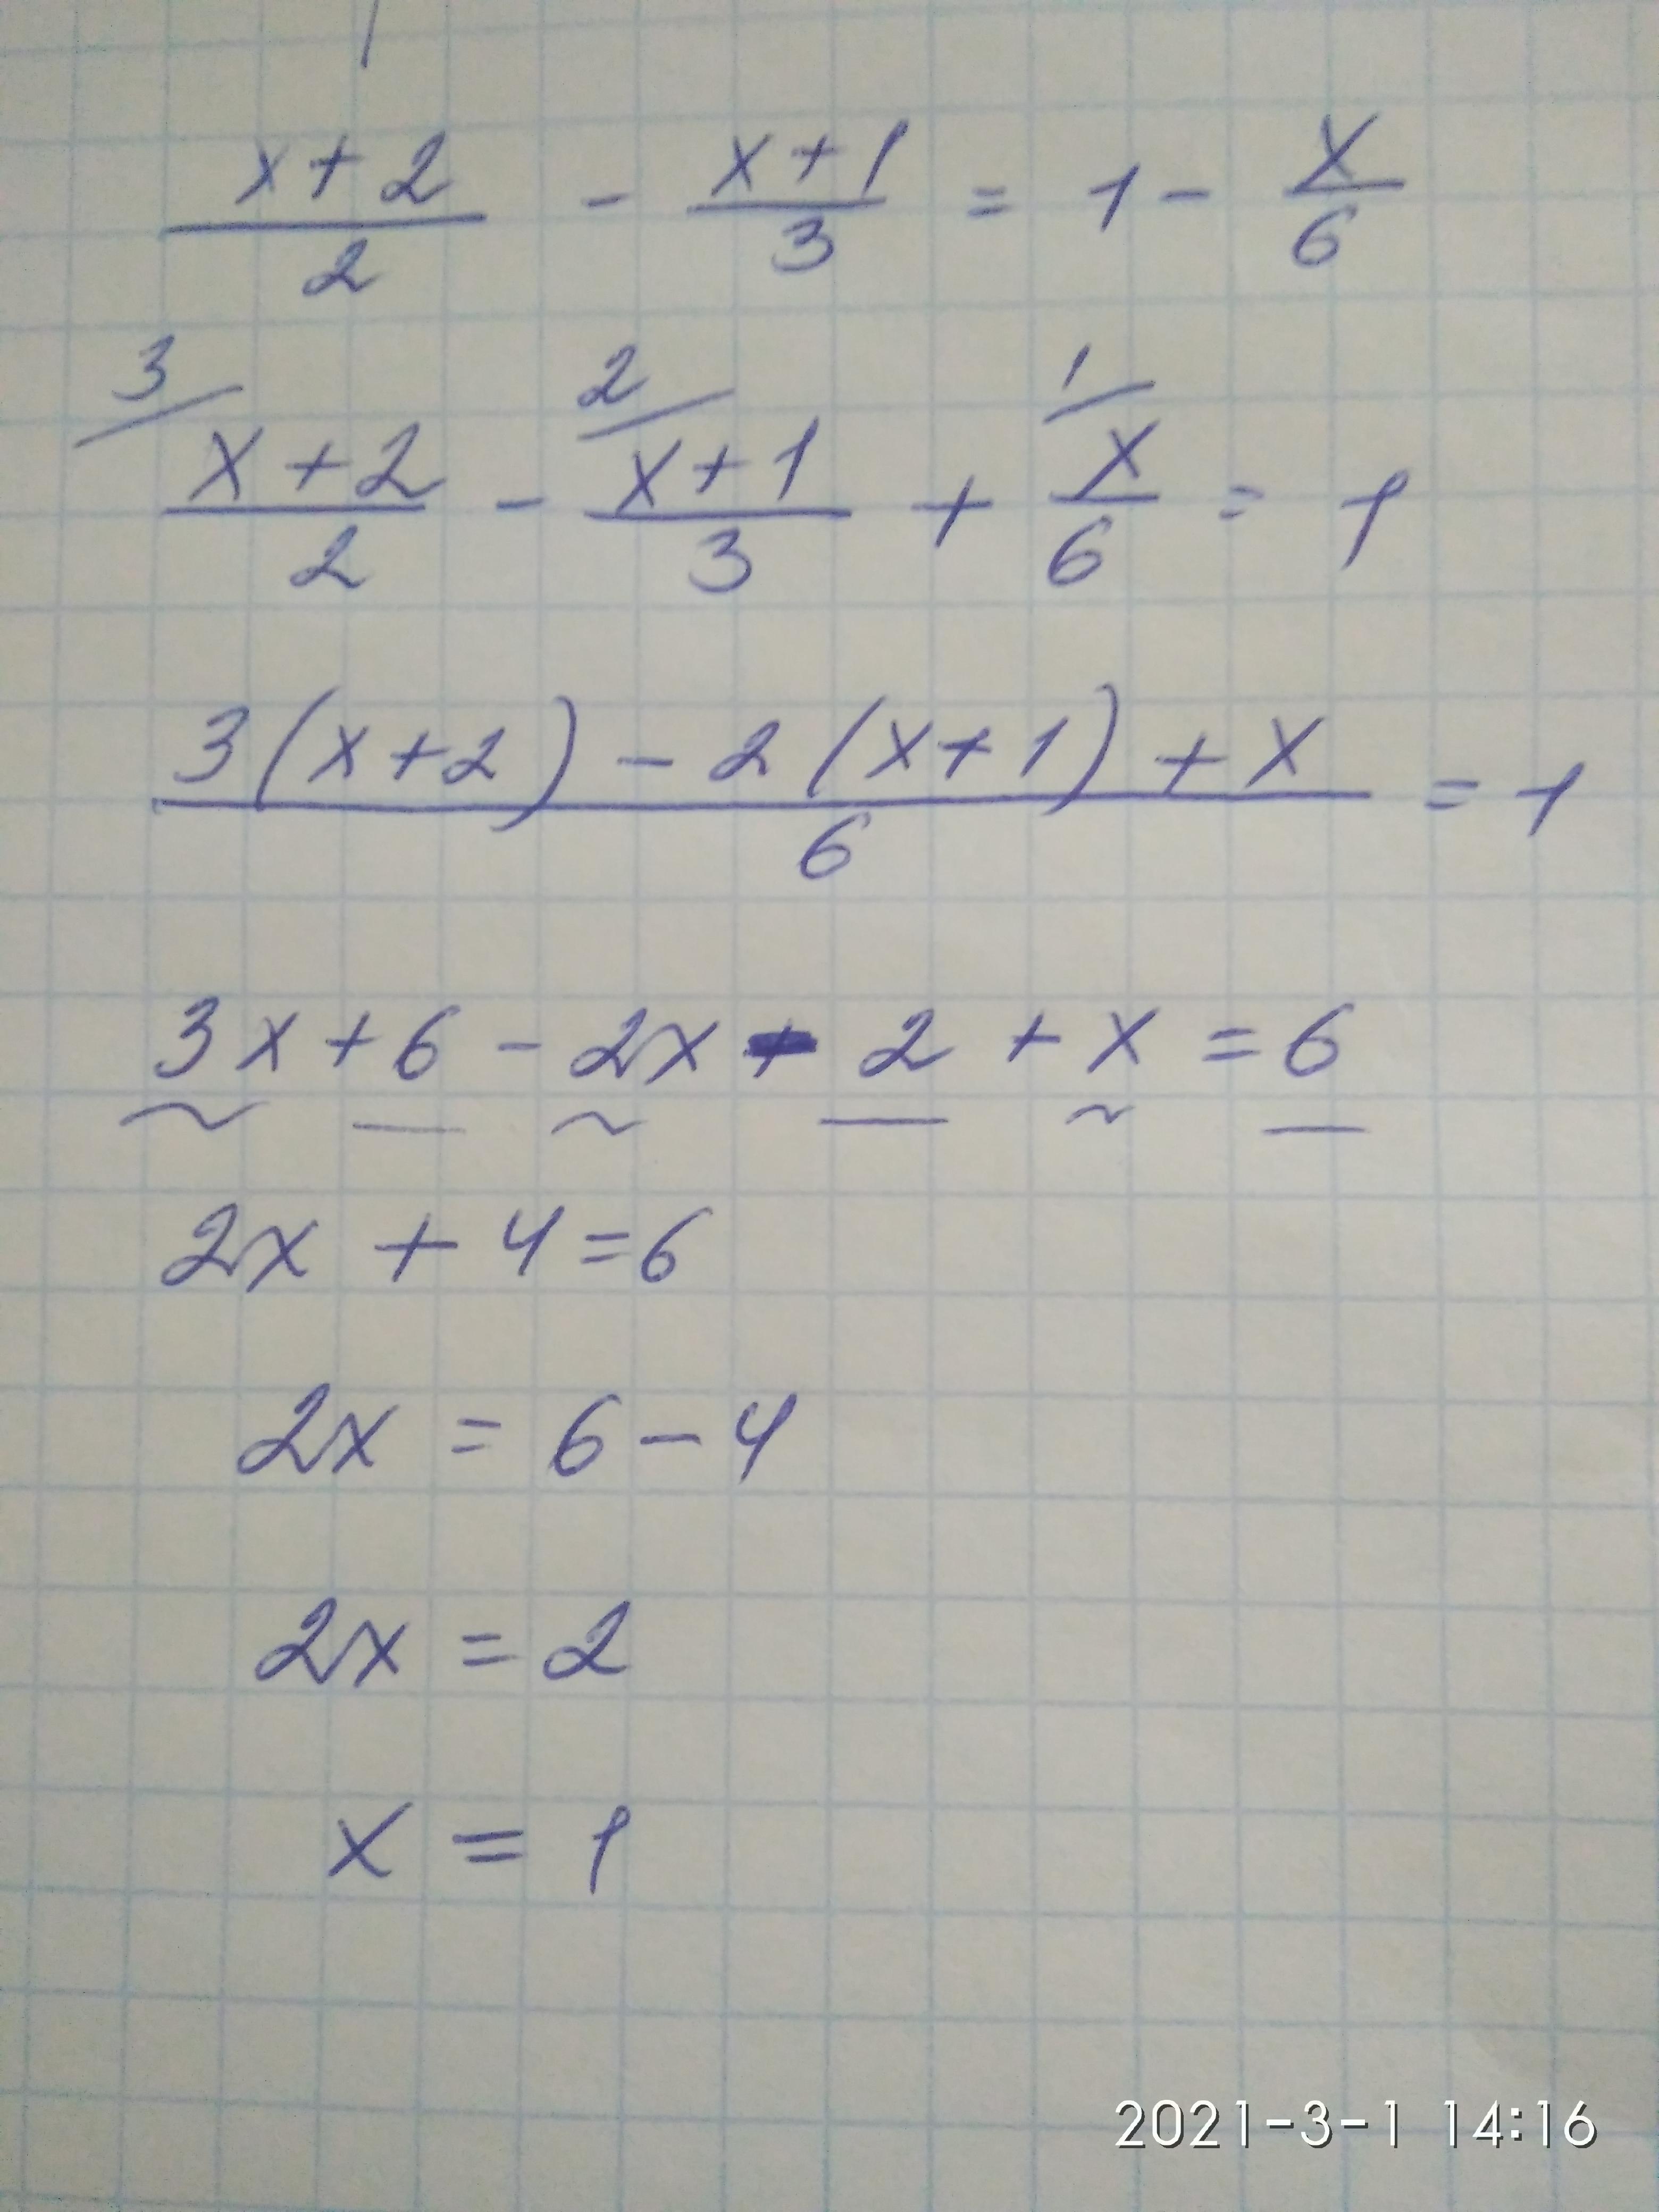 x+2/2 - x+1/3 = 1 - x/6
3/ x+2/2 - 2/ x+1/3 + 1/ x/6 = 1
3(x+2) - 2(x+1) + x / 6 = 1
3x + 6 - 2x - 2 + x = 6
2x + 4 = 6
2x = 6 - 4
2x = 2
x = 1
2021-3-1 14:16